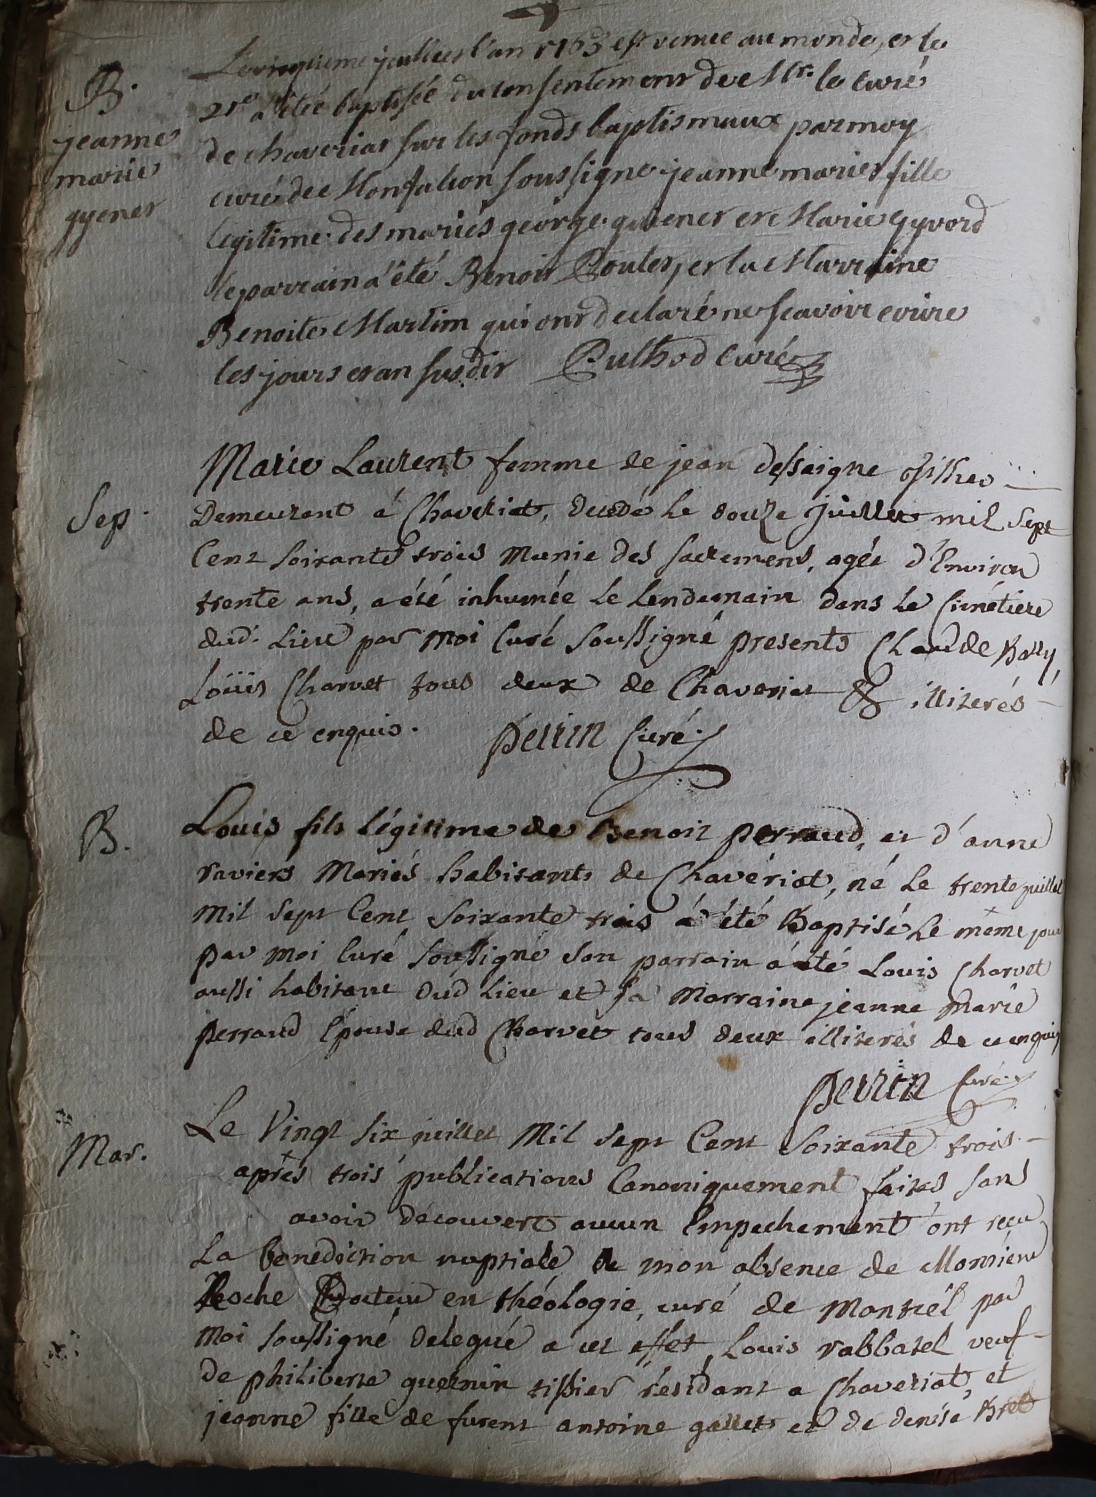 B.
jeanne
marie
gyener
Le vingtieme juillet l'an 1763 est venue au monde, et le
21e a été baptisée du consentement de Mr. le curé
de chaveriat sur les fonds baptismaux par moy
curé de Monfalcon soussigné jeanne marie fille
legitime des mariés george guiener et Marie Gyvord
le parrain a été Benoit Poulet, et la Marraine
Benoite Martim qui ont declaré ne scavoir ecrire
les jours et an susdit Buthod Curé
Sep.
Marie Laurent femme de jean dessaigne
Demeurant á Chaveriat, decedé le douze juillet mil Sept
Cent Soixante trois munie des sacremens, agée d'Environ
trente ans, a été inhumée le lendemain dans le Cimétiere
dud. Lieu par moi Curé Soussigné presents Claude Bally,
Loüis Charvet tous deux de Chaveriat & illiterés
de ce enquis. Perrin Curé
B.
Louis fils légitime de Benoit perraud, et d'anne
raviers Mariés habitants de Chavériat, né le trente juillet
mil sept Cent Soixante trois á été Baptisé le même jour
par moi Curé soussigné son parrain á été Louis Charvet
aussi habitant dud Lieu et sa Marraine jeanne Marie
perraud Épouse dud Charvet tous deux illiterés de ce enquis
Perrin Curé
Mar.
Le Vingt six juillet Mil Sept Cent Soixante trois
aprés trois publications Canoniquement faites sans
avoir découvert aucun Empechement ont reçu
La benediction nuptiale en mon absence de Monsieur
Roche Docteur en théologie, curé de montrél par
moi soussigné delegué a cet effet, Louis rabbatel veuf
de philiberte guernin tissier résidant a Chaveriat, et
jeanne fille de furent antoine gallet et de denise Bret